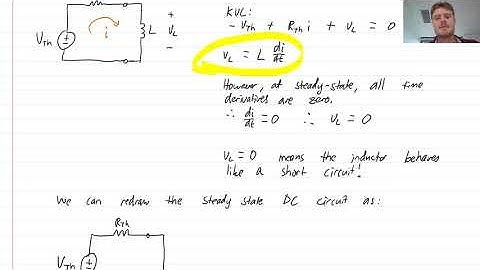 KVL:
- VTh + RTh i + VL = 0
VTh
i
L
+
VL
-
VL = L di/dt
However, at steady-state, all time
derivatives are zero.
∴ di/dt = 0 ∴ VL = 0
VL = 0 means the inductor behaves
like a short circuit!
We can redraw the steady state DC circuit as:
RTh
VTh